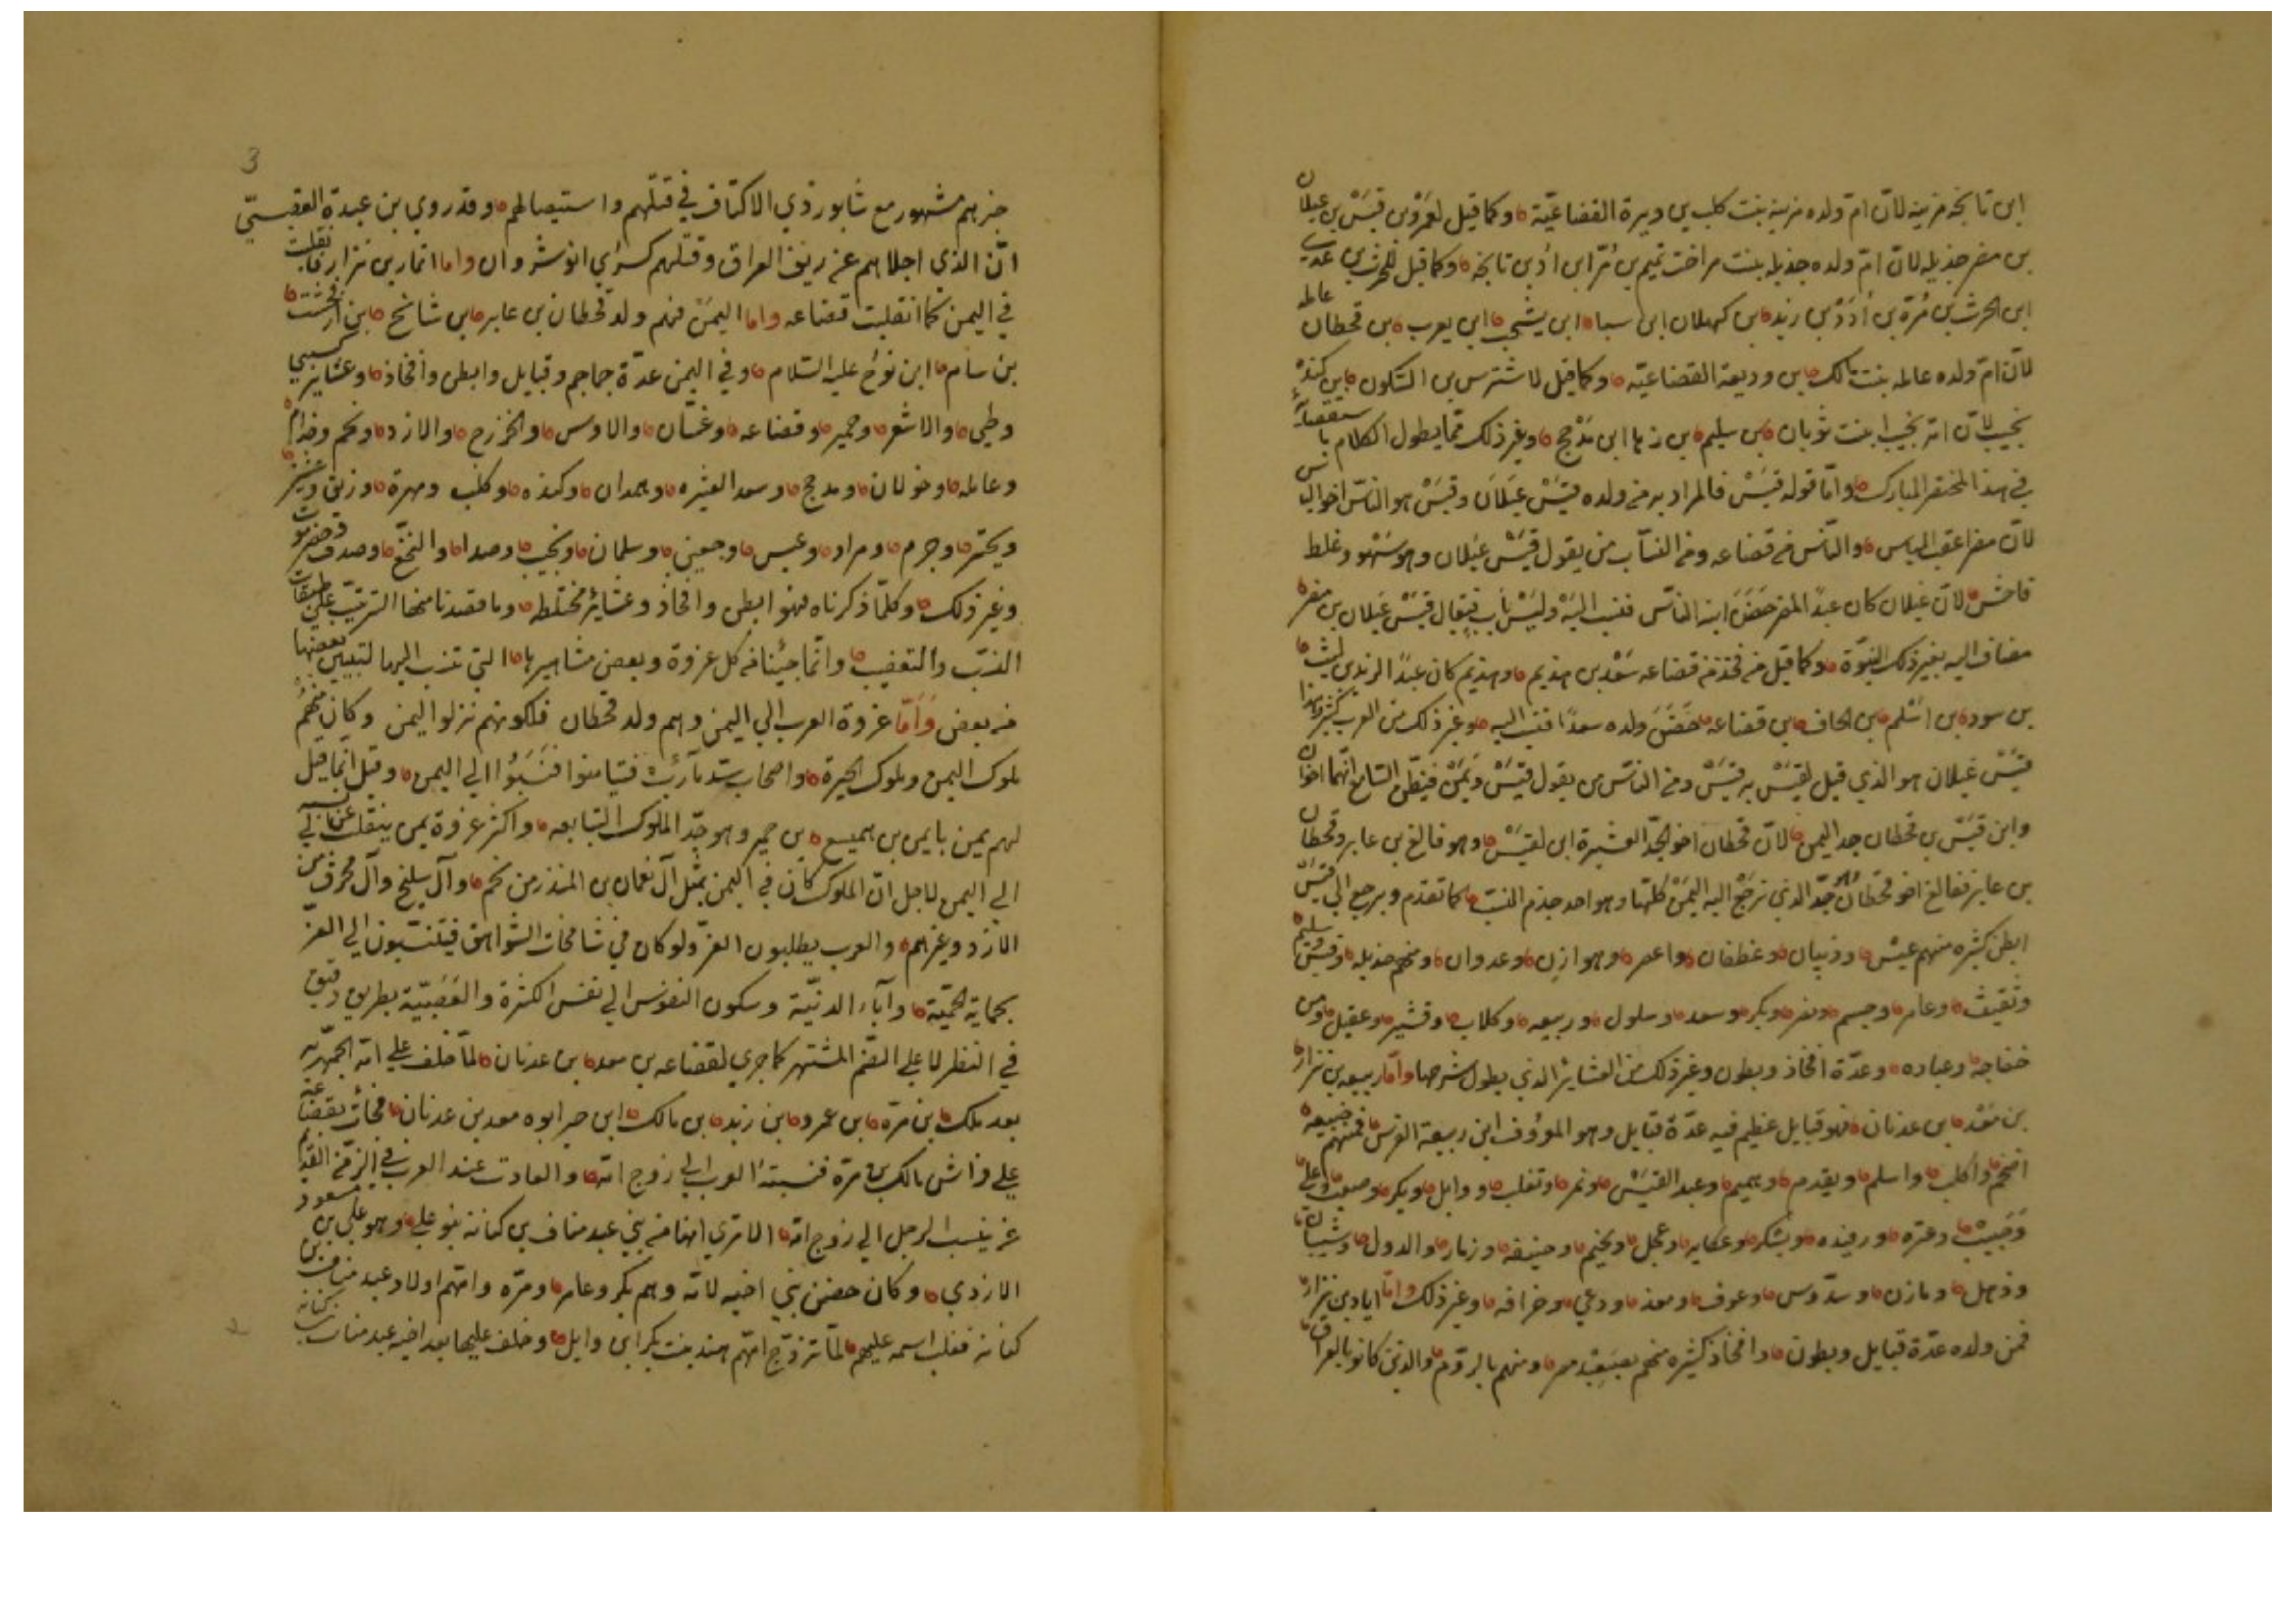 ابن تابخه مزينه لانّ امّ ولده مزينه بنت كلب بن وبرة القضاعيّة وكما قيل لعمرو بن قيس بن عيلان
بن مضر جذيله لانّ امّ ولده جذيله بنت مر اخت تميم بن مرّ ابن ادّ بن تابخه وكما قيل للحرث بن عدي
ابن الحرث بن مرّة بن أدد بن زيد بن كهلان ابن سبا ابن يشجب ابن يعرب بن قحطان عامله
لانّ امّ ولده عامله بنت مالك بن وديعة القضاعيّه وكما قيل لاشرس بن السّكون بن كندة
تجيب لانّ امّه تجيب ابنت ثوبان بن سليم بن رها ابن مذحج وغير ذلك ممّا يطول الكلام باستقصآئه
في هذا المختصر المبارك وامّا قوله قيس فالمراد به من ولده قيس عيلان وقيس هو النّاس اخو الياس
لانّ مضر اعقب الياس والنّاس من قضاعه ومن النسّاب من يقول قيس عيلان وهو سهو وغلط
فاحش لانّ عيلان كان عبدًا لمضر حضن ابنه النّاس فنسب اليه وليس باب فيقال قيس عيلان بن مضر
مضاف اليه بغير ذلك النبوّة وكما قيل من فخذ من قضاعه سعد بن هذيم وهذيم كان عبدًا لزيد بن ليث
بن سود بن اسلم بن الحاف بن قضاعه حضن ولده سعدًا فنسب اليه وغير ذلك من العرب كثير وهذا
قيس عيلان هو الذي قيل لقيس به قيس ومن النّاس من يقول قيس ويمن فيظنّ السّامع انّهما اخوان
وابن قيس بن قحطان جد اليمن لانّ قحطان اخو لجدّ العشيرة ابن لقيس وهو فالغ بن عابر وقحطان
بن عابر ففالغ اخو قحطان هو جدّ الذي ترجع اليه اليمن كلّها وهو احد جذم النسب كما تقدم ويرجع الي قيس
ابطن كثيره منهم عبس وذبيان وغطفان واعصر وهوازن وعدوان ومنهم جذيله وقيس وسليم
وثقيف وعامر وجسم ونصر وبكر وسعد وسلول وربيعه وكلاب وقشير وعقيل ومن
خفاجه وعباده وعدّة افخاذ وبطون وغير ذلك من العشاير الذي يطول شرحها وامّا ربيعه بن نزار
بن معد بن عدنان فهو قبايل عظيم فيه عدّة قبايل وهو المعروف ابن ربيعة الفرس فمنهم ضبيعه
اضجم واكلب واسلم ويقدم وهميم وعبد القيس ونمر وتغلب ووايل وبكر وصعب وعلي
وحبيب وعنزه ورفيده ويشكر وعكابه وعجل ولجيم وحنيفه وزمار والدول وشيبان
وذهل ومازن وسدّوس وعوف وسعد ودعمي وخرافه وغير ذلك وامّا اياد بن نزار
فمن ولده عدّة قبايل وبطون وافخاذ كثيره منهم بصعيد مصر ومنهم بالرّوم والذين كانو بالعراق
3
خبرهم مشهور مع شابور ذي الاكتاف في قتلهم واستيصالهم وقد روي بن عبدة العقبسيّ
انّ الذي اجلاهم عن ريف العراق وقتلهم كسري انوشروان واما انمار بن نزار نقلت
في اليمن كما انقلبت قضاعه واما اليمن فهم ولد قحطان بن عابر بن شالخ بن ارفخشد
بن سام ابن نوح عليه السّلام وفي اليمن عدّة جماجم وقبايل وابطن وافخاذ وعشاير كسبي
وطي والاشعر وحمير وقضاعه وغسّان والاوس والخزرج والازد ولخم وجذام
وعامله وخولان ومدجج وسعد العشره وهمدان وكنده وكلب ومهرة وزبيد وعنز
وبحتر وجرم ومراد وعبس وجعفي وسلمان وتجيب وصدا والنخع وصدف وحضرموت
وغير ذلك وكلّما ذكرناه فهو ابطن وافخاذ وعشاير مختلطه وما قصدنا منها الترتيب علي طبقات
النسب والتعقيب وانّما جيئنا من كل عزوة وبعض مشاهيرها التي تنسب اليها لتبيين بعضها
من بعض وأمّا عزوة العرب الي اليمن وهم ولد قحطان فلكونهم نزلوا اليمن وكان منهم
ملوك اليمن وملوك الحيرة واصحاب سد مآرب فتيامنوا فنسبوا الي اليمن وقيل انّما قيل
لهم يمن بايمن بن هميسع بن حمير وهو جدّ الملوك التبابعه واكثر عزوة يمن ينقلب عن نسبه
الي اليمن لاجل انّ الملوك كان في اليمن مثل آل نعمان بن المنذر من لخم وآل سليخ وآل محرق من
الازد وغيرهم والعرب يطلبون العزّ ولو كان في شامخات الشّواهق فيتنسّبون الي العزّ
بحماية الحميّة وآباء الدنيّة وسكون النفوس الي نفس الكثرة والعصبيّة بطريق دقيق
في النظر لا علي الفمّ المشتهر كما جري لقضاعه بن معد بن عدنان لمّا خلف علي امّه الجمهريه
بعد ملك بن مرّه بن عمرو بن زيد بن مالك ابن حمير ابوه معد بن عدنان فجأت بقضاعه
علي فراش مالك بن مرة فنسبته العرب الي زوج امّه والعادت عند العرب في الزّمن القديم
عن ينسب الرجل الي زوج امّه الا تري انها من بني عبد مناف بن كنانة بنو علي وهو علي بن مسعود
الازدي وكان حضن بني اخيه لامّه وهم بكر وعامر ومرّه وامّهم اولاد عبد مناف بن
كنانة فغلب اسمه عليهم لمّا تزوّج امّهم هند بنت بكر ابن وايل وخلف عليها بعد اخيه عبد مناف بن كنانة